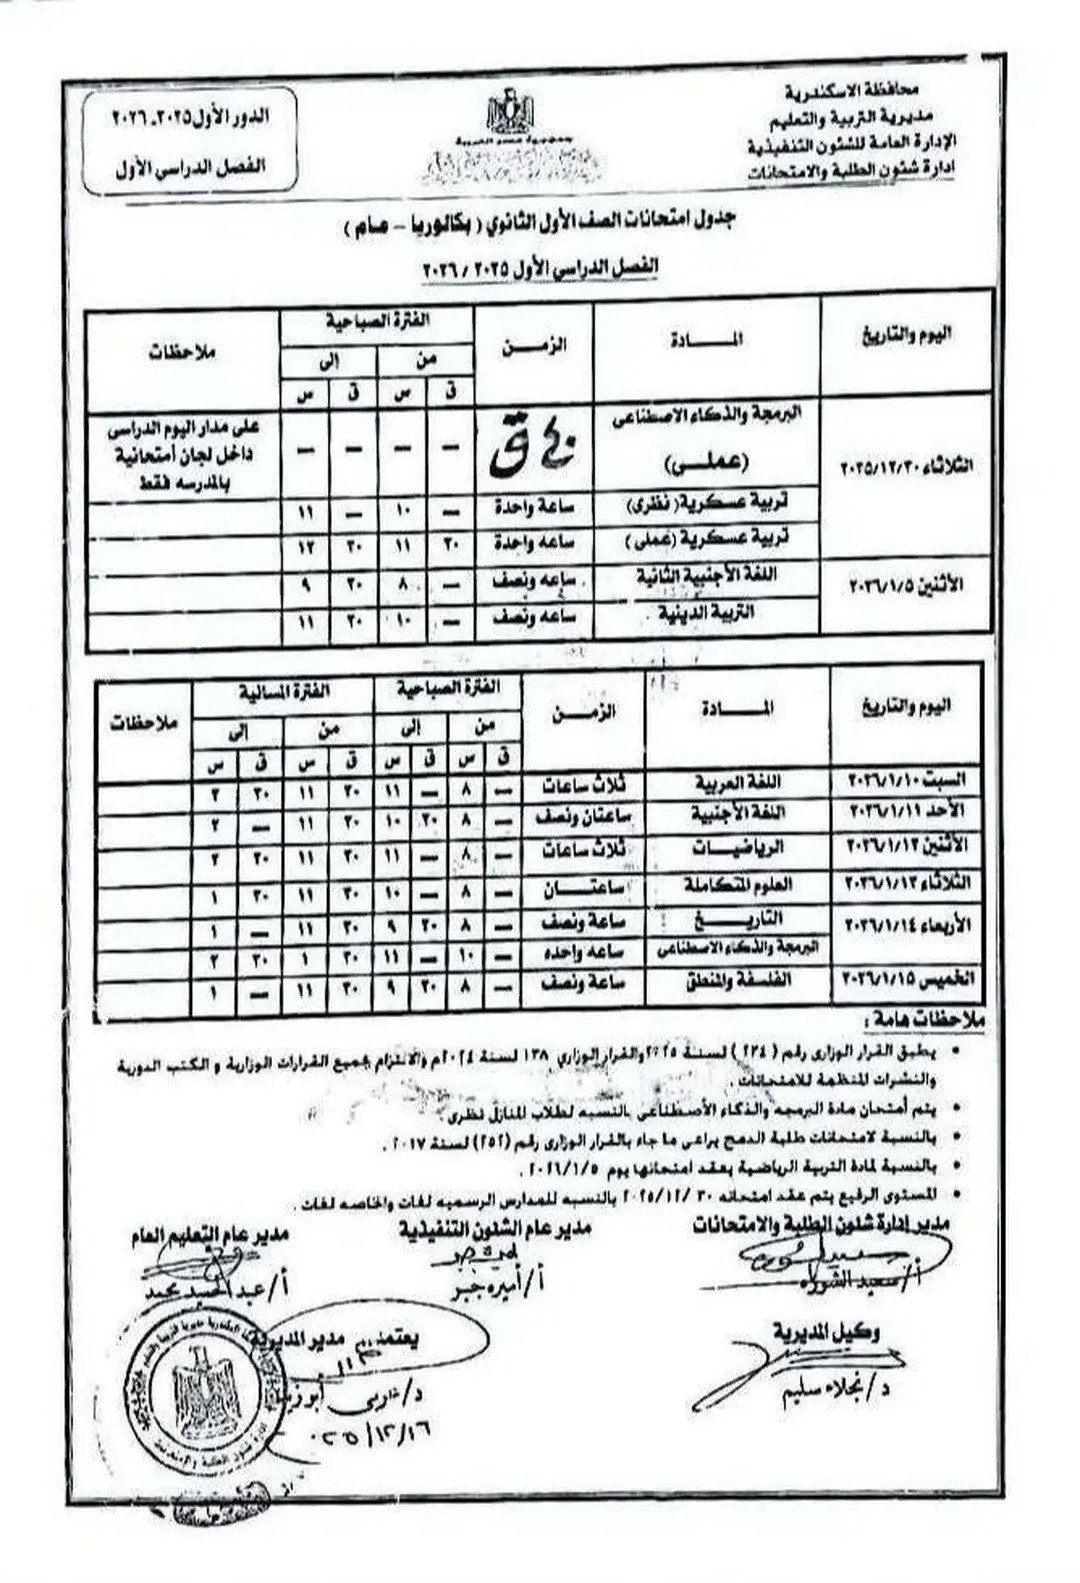 محافظة الاسكندرية
مديرية التربية والتعليم
الإدارة العامة للشئون التنفيذية
ادارة شئون الطلبة والامتحانات
الدور الأول ٢٠٢٥ـ٢٠٢٦
الفصل الدراسي الأول
جدول امتحانات الصف الأول الثانوي ( بكالوريا – عام )
الفصل الدراسي الأول ٢٠٢٥ / ٢٠٢٦
اليوم والتاريخ المـــادة الزمـن الفترة الصباحية ملاحظات
من إلى
ق س ق س
الثلاثاء ٢٠٢٥/١٢/٣٠ البرمجة والذكاء الاصطناعى (عملى) ٤٠ ق – – – – على مدار اليوم الدراسى داخل لجان أمتحانية بالمدرسه فقط
تربية عسكرية( نظرى) ساعة واحدة – ١٠ – ١١
تربية عسكرية (عملى) ساعه واحدة ٣٠ ١١ ٣٠ ١٢
الأثنين ٢٠٢٦/١/٥ اللغة الأجنبية الثانية ساعه ونصف – ٨ ٣٠ ٩
التربية الدينية ساعه ونصف – ١٠ ٣٠ ١١
اليوم والتاريخ المـــادة الزمـن الفترة الصباحية الفترة المسائية ملاحظات
من إلى من إلى
ق س ق س ق س ق س
السبت ٢٠٢٦/١/١٠ اللغة العربية ثلاث ساعات – ٨ – ١١ ٣٠ ١١ ٣٠ ٢
الأحد ٢٠٢٦/١/١١ اللغة الأجنبية ساعتان ونصف – ٨ ٣٠ ١٠ ٣٠ ١١ – ٢
الأثنين ٢٠٢٦/١/١٢ الرياضيات ثلاث ساعات – ٨ – ١١ ٣٠ ١١ ٣٠ ٢
الثلاثاء ٢٠٢٦/١/١٣ العلوم المتكاملة ساعتـــان – ٨ – ١٠ ٣٠ ١١ ٣٠ ١
الأربعاء ٢٠٢٦/١/١٤ التاريـــخ ساعة ونصف – ٨ ٣٠ ٩ ٣٠ ١١ – ١
البرمجة والذكاء الاصطناعى ساعه واحده – ١٠ – ١١ ٣٠ ١ ٣٠ ٢
الخميس ٢٠٢٦/١/١٥ الفلسفة والمنطق ساعة ونصف – ٨ ٣٠ ٩ ٣٠ ١١ – ١
ملاحظات هامة :
• يطبق القرار الوزارى رقم ( ٢٣٤ ) لسنة ٢٠٢٥ والقرار الوزاري ١٣٨ لسنة ٢٠٢٤م والالتزام بجميع القرارات الوزارية و الكتب الدورية
والنشرات المنظمة للامتحانات .
• يتم أمتحان مادة البرمجه والذكاء الأصطناعى بالنسبه لطلاب المنازل نظرى .
• بالنسبة لامتحانات طلبة الدمج يراعى ما جاء بالقرار الوزارى رقم (٢٥٢) لسنة ٢٠١٧ .
• بالنسبة لمادة التربية الرياضية يعقد امتحانها يوم ٢٠٢٦/١/٥ .
• المستوى الرفيع يتم عقد امتحانه ٣٠ /٢٠٢٥/١٢ بالنسبه للمدارس الرسميه لغات والخاصه لغات .
مدير إدارة شئون الطلبة والامتحانات مدير عام الشئون التنفيذية مدير عام التعليم العام
أ/ سعيد أ/ أميره جبر أ/ عبد الحميد محمد
وكيل المديرية يعتمد مدير المديرية
د/ نجلاء سليم د/ عربى أبو زيد
٢٠٢٥/١٢/١٦